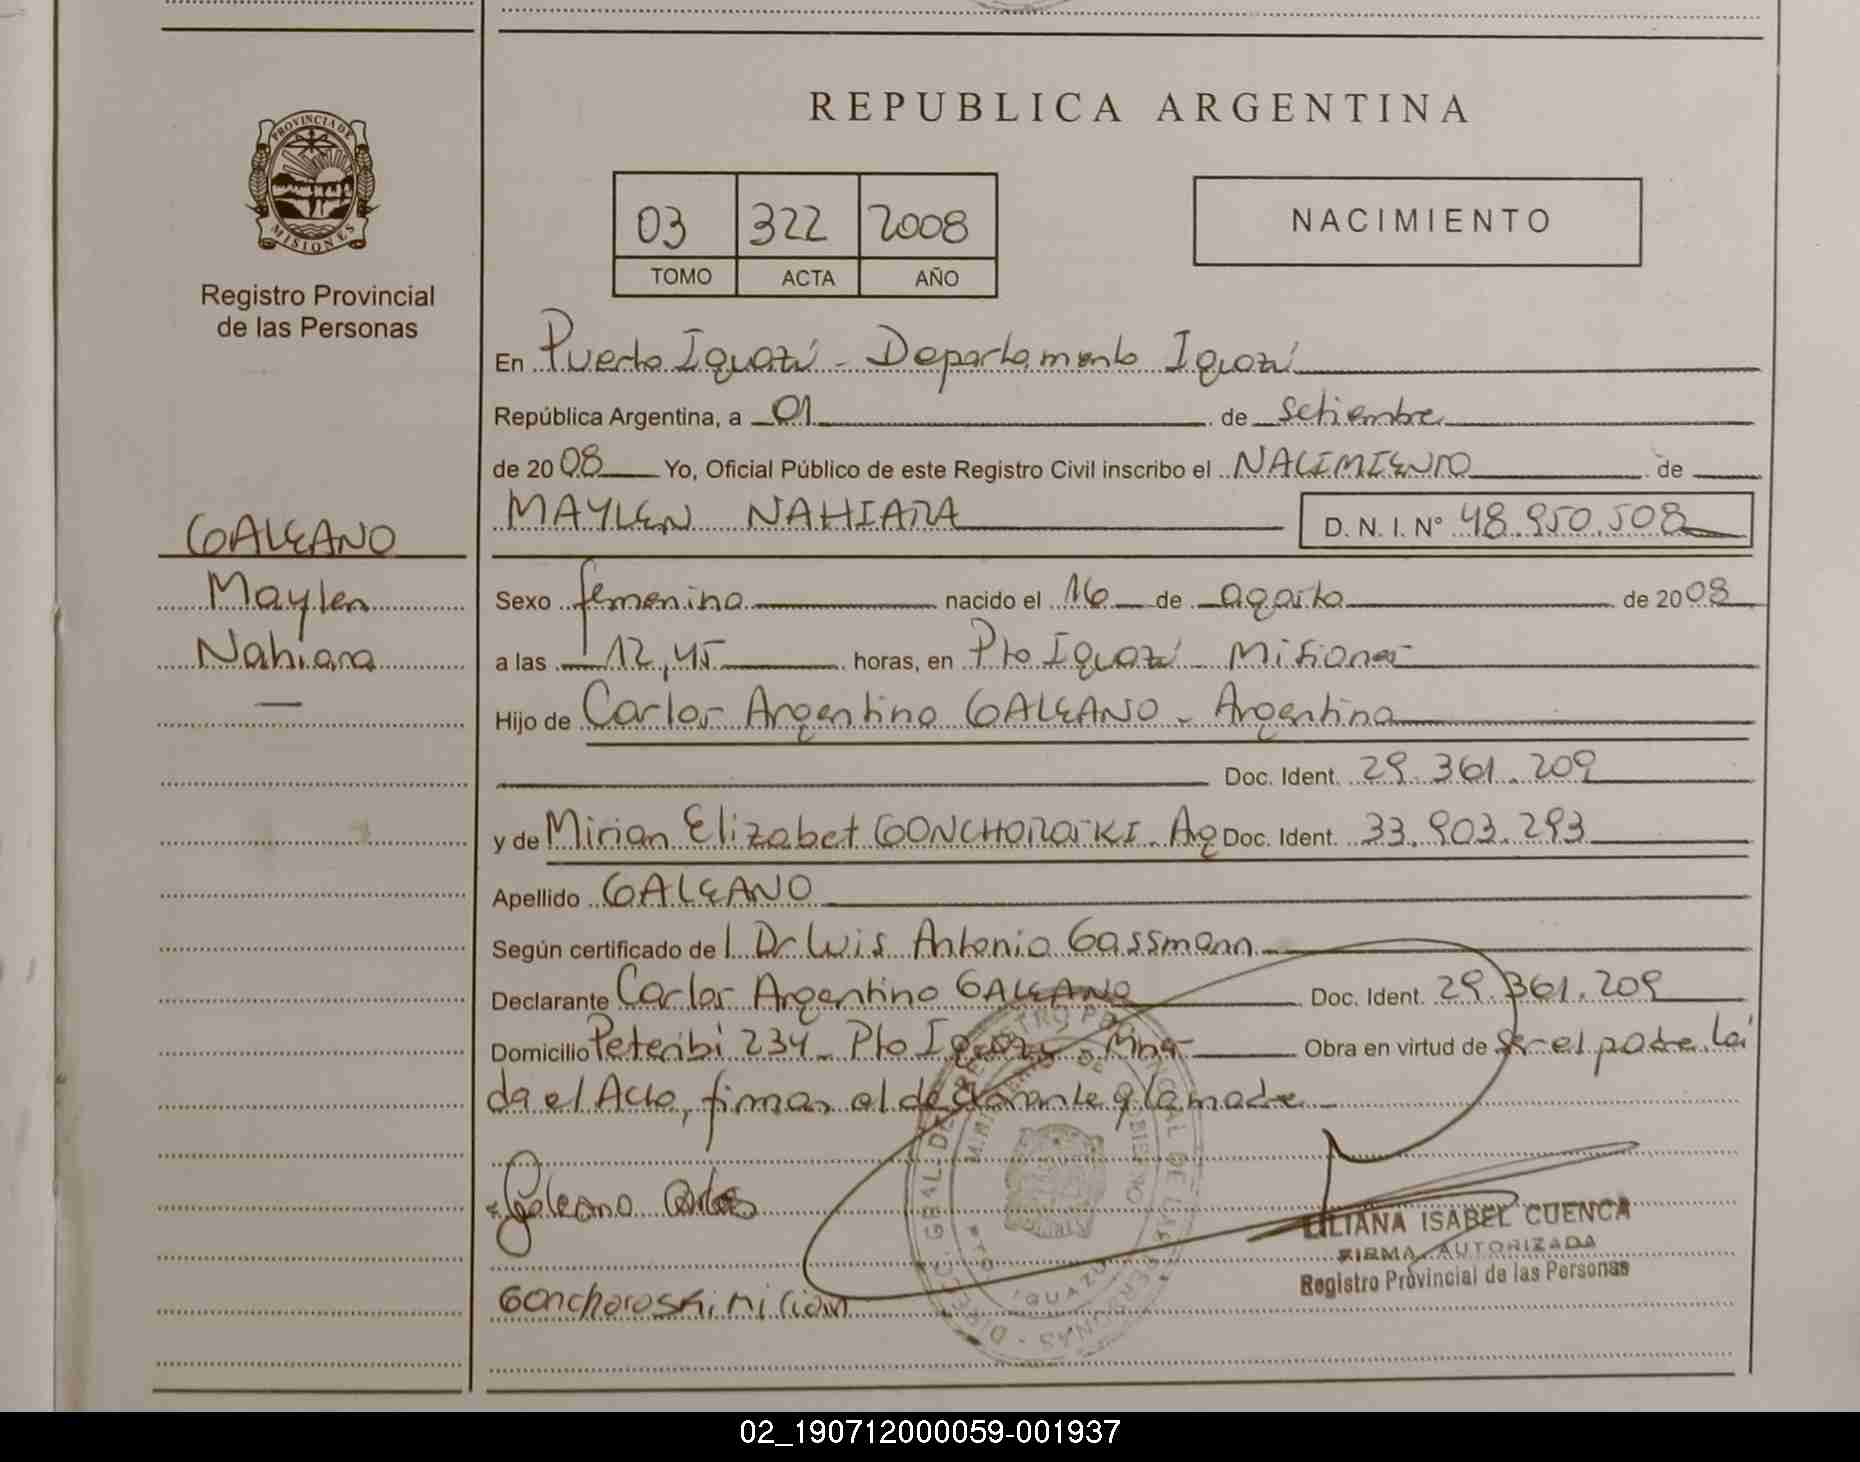 REPUBLICA ARGENTINA
PROVINCIA DE
MISIONES
Registro Provincial
de las Personas
03 322 2008
TOMO ACTA AÑO
NACIMIENTO
En Puerto Iguazú - Departamento Iguazú
República Argentina, a 01 de setiembre
de 2008 Yo, Oficial Público de este Registro Civil inscribo el NACIMIENTO de
MAYLEN NAHIARA D. N. I. N° 48.950.508
GALEANO
Maylen
Nahiara
Sexo femenino nacido el 16 de agosto de 2008
a las 12,45 horas, en Pto Iguazú Misiones
Hijo de Carlos Argentino GALEANO - Argentino
Doc. Ident. 29.361.209
y de Mirian Elizabet GONCHOROSKI - Ag Doc. Ident. 33.903.293
Apellido GALEANO
Según certificado de Dr Luis Antonio Gassmann
Declarante Carlos Argentino GALEANO Doc. Ident. 29.361.209
Domicilio Peteribi 234 - Pto Iguazú - Mnes Obra en virtud de ser el padre Leí
da el Acta, firman el declarante y la madre
Galeano Carlos
LILIANA ISABEL CUENCA
FIRMA AUTORIZADA
Registro Provincial de las Personas
Gonchoroski Mirian
02_190712000059-001937